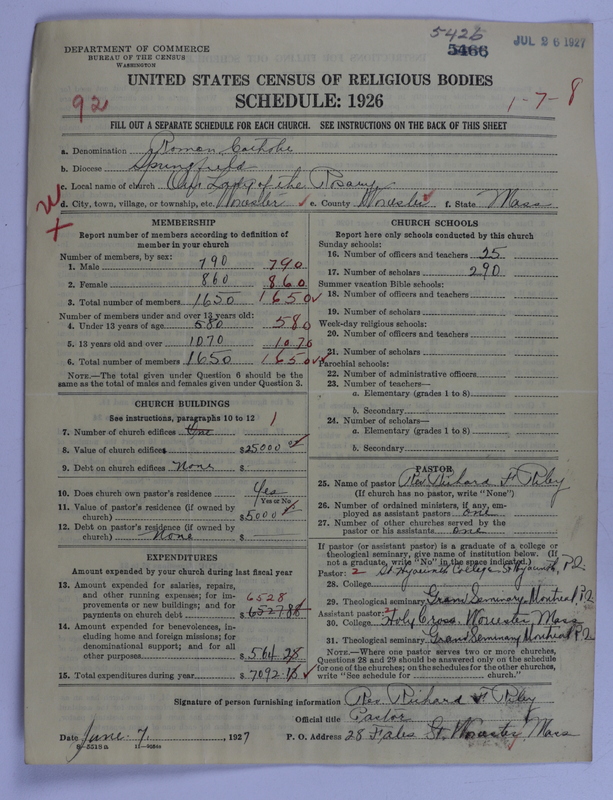 5426
5466
JUL 26 1927
DEPARTMENT OF COMMERCE
BUREAU OF THE CENSUS
WASHINGTON
UNITED STATES CENSUS OF RELIGIOUS BODIES
SCHEDULE: 1926
92
1-7-8
FILL OUT A SEPARATE SCHEDULE FOR EACH CHURCH. SEE INSTRUCTIONS ON THE BACK OF THIS SHEET
a. Denomination Roman Catholic
b. Diocese Springfield
c. Local name of church Our Lady of the Rosary
d. City, town, village, or township, etc. Worcester e. County Worcester f. State Mass
MEMBERSHIP
Report number of members according to definition of
member in your church
Number of members, by sex:
1. Male 790 790
2. Female 860 860
3. Total number of members 1650 1650
Number of members under and over 13 years old:
4. Under 13 years of age 580 580
5. 13 years old and over 1070 1070
6. Total number of members 1650 1650
NOTE.—The total given under Question 6 should be the
same as the total of males and females given under Question 3.
CHURCH BUILDINGS
See instructions, paragraphs 10 to 12
7. Number of church edifices One 1
8. Value of church edifices $25000
9. Debt on church edifices None $
10. Does church own pastor's residence Yes
(Yes or No)
11. Value of pastor's residence (if owned by
church) $5000
12. Debt on pastor's residence (if owned by
church) None $
EXPENDITURES
Amount expended by your church during last fiscal year
13. Amount expended for salaries, repairs,
and other running expenses; for im-
provements or new buildings; and for
payments on church debt $6527 88
6528
14. Amount expended for benevolences, in-
cluding home and foreign missions; for
denominational support; and for all
other purposes $564 28
15. Total expenditures during year $7092.
CHURCH SCHOOLS
Report here only schools conducted by this church
Sunday schools:
16. Number of officers and teachers 25
17. Number of scholars 290
Summer vacation Bible schools:
18. Number of officers and teachers
19. Number of scholars
Week-day religious schools:
20. Number of officers and teachers
21. Number of scholars
Parochial schools:
22. Number of administrative officers
23. Number of teachers—
a. Elementary (grades 1 to 8)
b. Secondary
24. Number of scholars—
a. Elementary (grades 1 to 8)
b. Secondary
PASTOR
25. Name of pastor Rev. Richard F. Riley
(If church has no pastor, write "None")
26. Number of ordained ministers, if any, em-
ployed as assistant pastor one
27. Number of other churches served by the
pastor or his assistants one
If pastor (or assistant pastor) is a graduate of a college or
theological seminary, give name of institution below. (If
not a graduate, write "No" in the space indicated.)
Pastor: 2 St. Hyacinth College St Hyacinth, P.Q.
28. College
29. Theological seminary Grand Seminary, Montreal, P.Q.
Assistant pastor: 2
30. College Holy Cross, Worcester, Mass
31. Theological seminary Grand Seminary Montreal P.Q.
NOTE.—Where one pastor serves two or more churches,
Questions 28 and 29 should be answered only on the schedule
for one of the churches; on the schedules for the other churches,
write "See schedule for church."
Signature of person furnishing information Rev. Richard F. Riley
Official title Pastor
Date June 7, 1927 P. O. Address 28 Fales St. Worcester, Mass
8-5518a